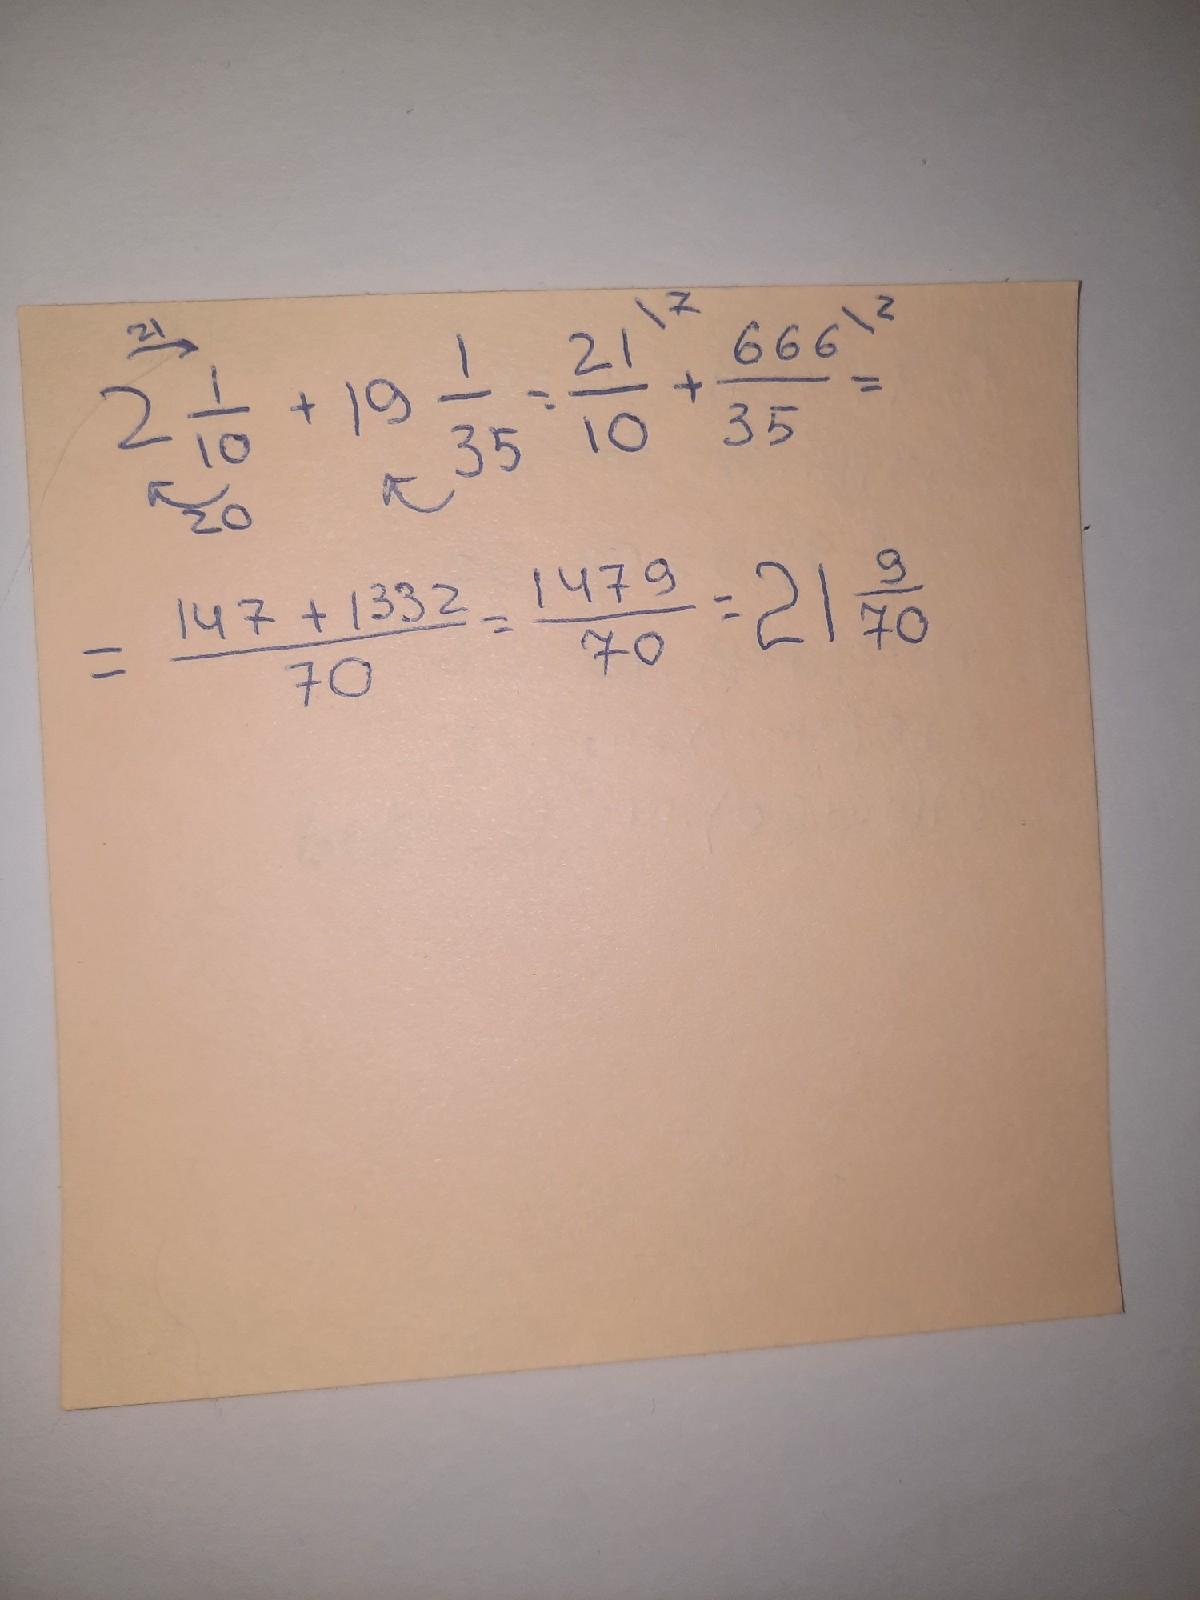 2 1/10 + 19 1/35 = 21/10 \7 + 666/35 \2 =
21
20
= 147 + 1332/70 = 1479/70 = 21 9/70